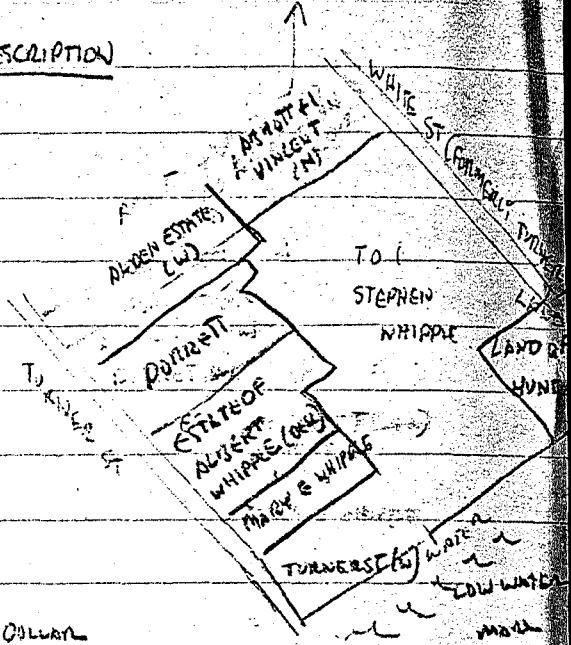 SCRIPTION
WHITE ST (FORMERLY TURNER
VINCENT
(N)
ALDEN ESTATE
(W)
TO
STEPHEN
WHIPPLE
LAND OF
HUNT
DORRETT
TURNER ST
ESTATE OF
ALBERT
WHIPPLE
MARY E WHIPPLE
TURNER ST (W) WATER
LOW WATER
MARK
DOLLAR